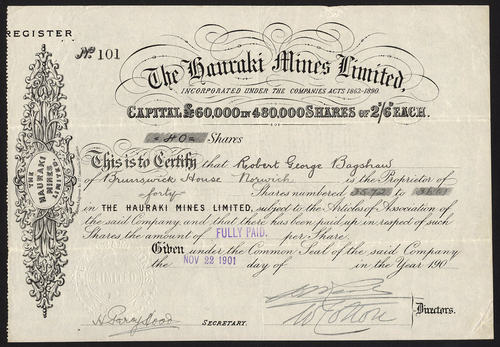 REGISTER
No. 101
The Hauraki Mines Limited,
INCORPORATED UNDER THE COMPANIES ACTS 1862-1890.
CAPITAL £60,000 IN 480,000 SHARES OF 2/6 EACH.
40 Shares
This is to Certify that Robert George Bagshaw
of Brunswick House Norwich is the Proprietor of
forty Shares numbered to
in THE HAURAKI MINES LIMITED, subject to the Articles of Association of
the said Company and that there has been paid up in respect of such
Shares the amount of FULLY PAID. per Share
Given under the Common Seal of the said Company
the NOV 22 1901 day of in the Year 190
SECRETARY.
Directors.
THE HAURAKI MINES LIMITED